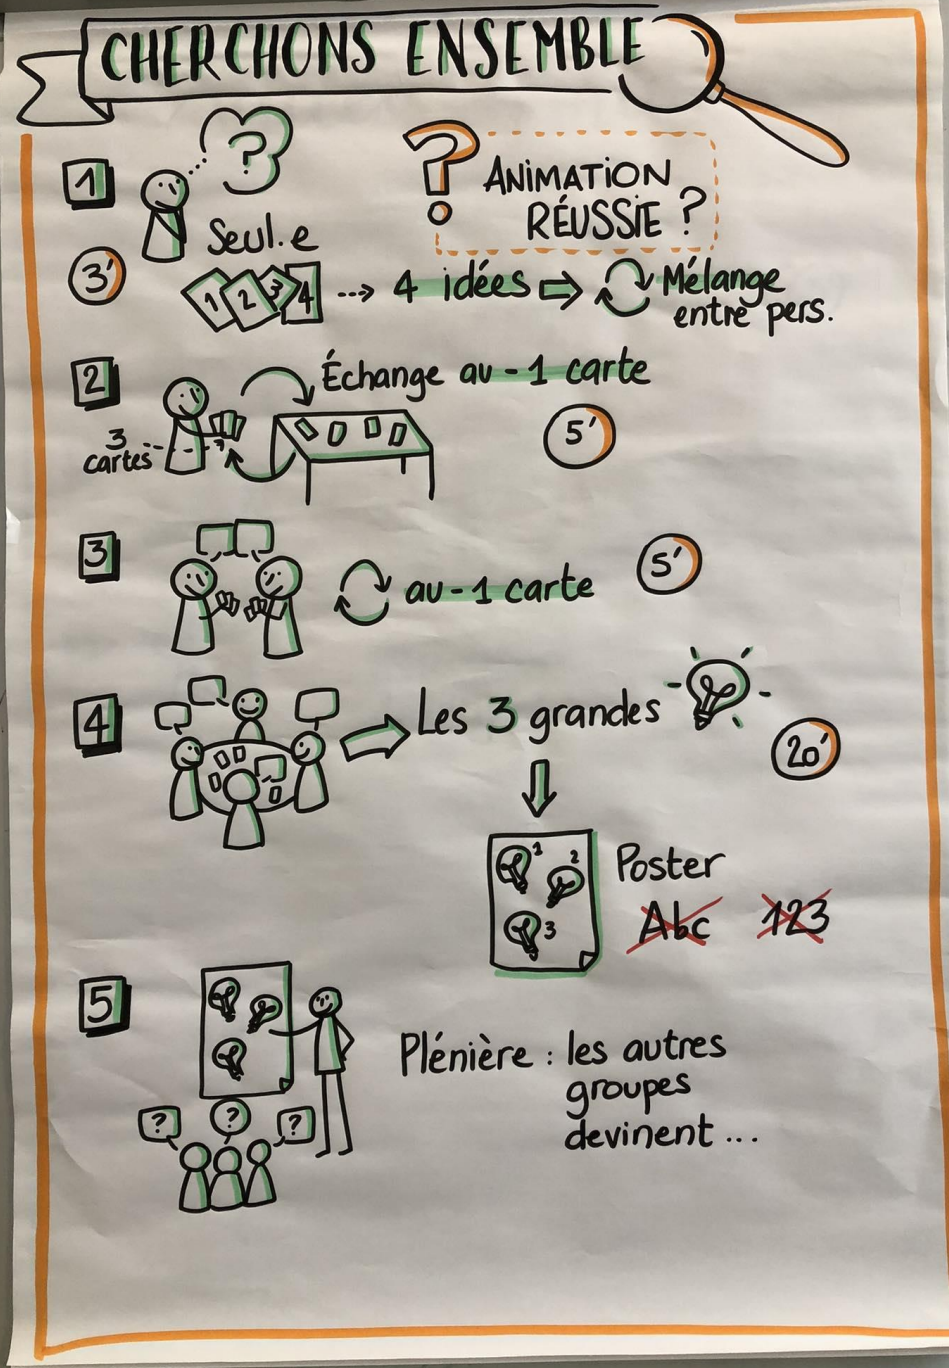 CHERCHONS ENSEMBLE
1
?
? ANIMATION
RÉUSSIE ?
Seul.e
3'
1 2 3 4 4 idées Mélange
entre pers.
2
Échange au-1 carte
3
cartes
5'
3
au-1 carte
5'
4
Les 3 grandes
20'
1 2
3
Poster
Abc 123
5
Plénière : les autres
groupes
devinent ...
? ? ?